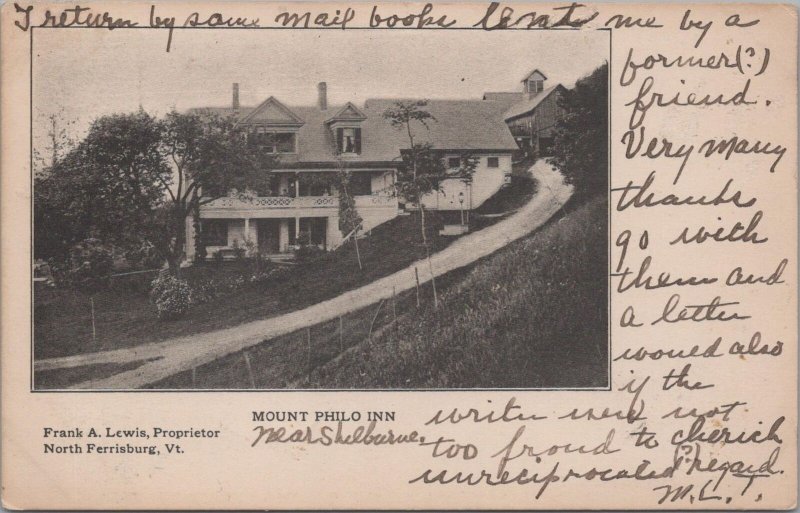 I return by same mail books lent me by a
former(?)
friend.
Very many
thanks
go with
them and
a letter
would also
if the
writer were not
too proud to cherish
unreciprocated (?) regard.
M. L. T.
MOUNT PHILO INN
near Shelburne.
Frank A. Lewis, Proprietor
North Ferrisburg, Vt.